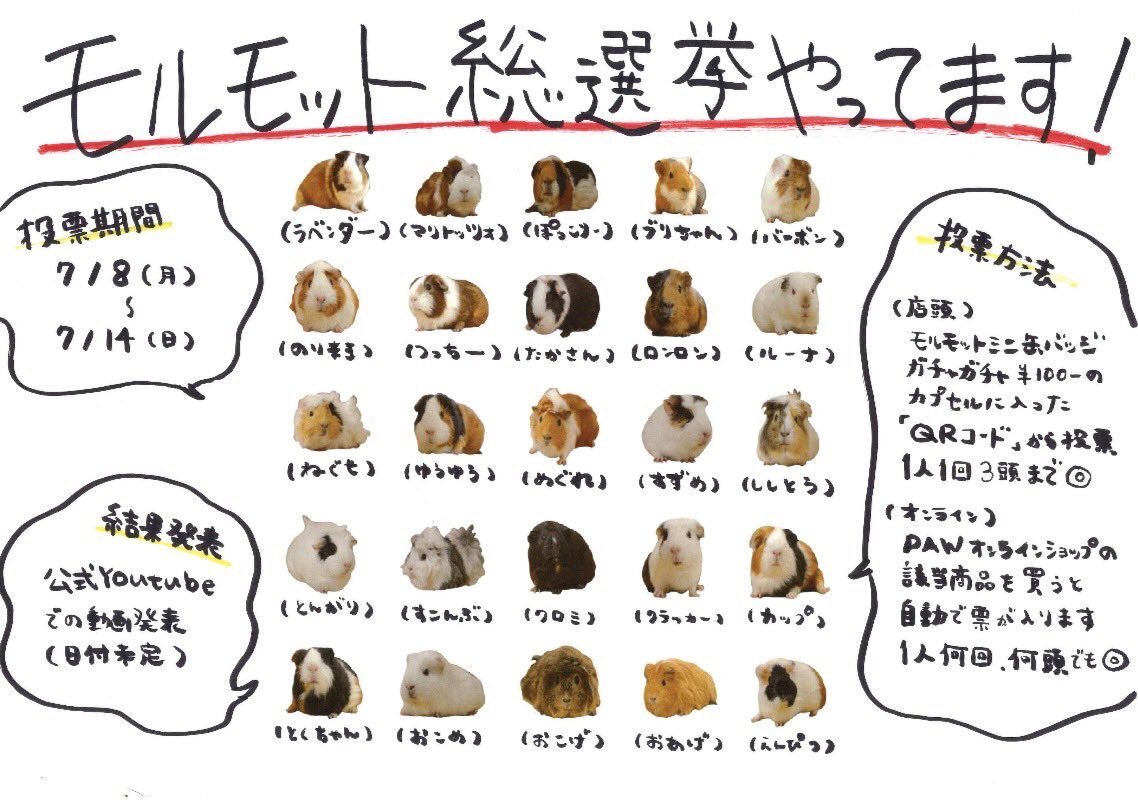 モルモット総選挙やってます!
投票期間
7/8(月)
~
7/14(日)
(ラベンダー) (マリトッツォ) (ぽっこりー) (ブリちゃん) (バーボン)
(のりまき) (つっちー) (たかさん) (ロンロン) (ルーナ)
(ねぐせ) (ゆるゆる) (めぐれ) (すずめ) (ししとう)
(とんがり) (すこんぶ) (クロミ) (クラッカー) (カップ)
(とくちゃん) (おこめ) (おこげ) (おあげ) (えんぴつ)
結果発表
公式Youtube
での動画発表
(日付未定)
投票方法
(店頭)
モルモットミニ缶バッジ
ガチャガチャ¥100-の
カプセルに入った
「QRコード」から投票
1人1回3頭まで◎
(オンライン)
PAWオンラインショップの
該当商品を買うと
自動で票が入ります
1人何回、何頭でも◎